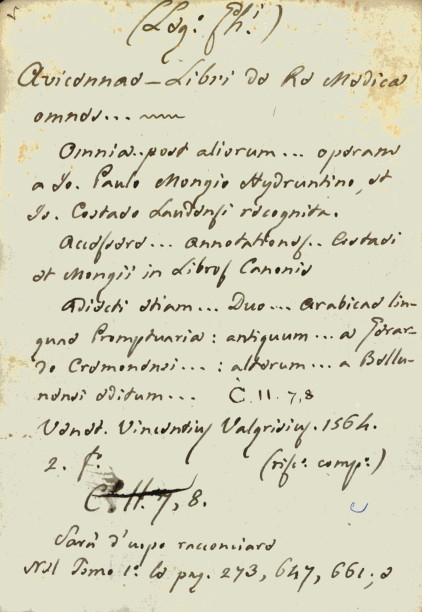 (Leg: Fh:)
Avicennae – Libri de Re Medica
omnes...
Omnia.. post aliorum... operam
a Jo. Paulo Mongio Hydruntino, et
Jo. Costaeo Laudensi recognita.
Accessere... annotationes.. Costaei
et Mongii in Libros Canonis
Adiecti etiam... Duo... Arabicae lin-
guae Promptuaria: antiquum... a Gerar-
do Cremonensi...: alterum... a Bellu-
nensi editum... C. 11. 7, 8
Venet. Vincentius Valgrisius. 1564.
2. f. (rife: comp:)
C. 11. 7, 8.
Sarà d'uopo racconciare
Nel Tomo 1: le pag. 273, 647, 661; e